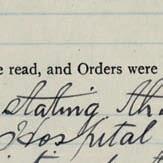 e read, and Orders were
stating tha
Hospital